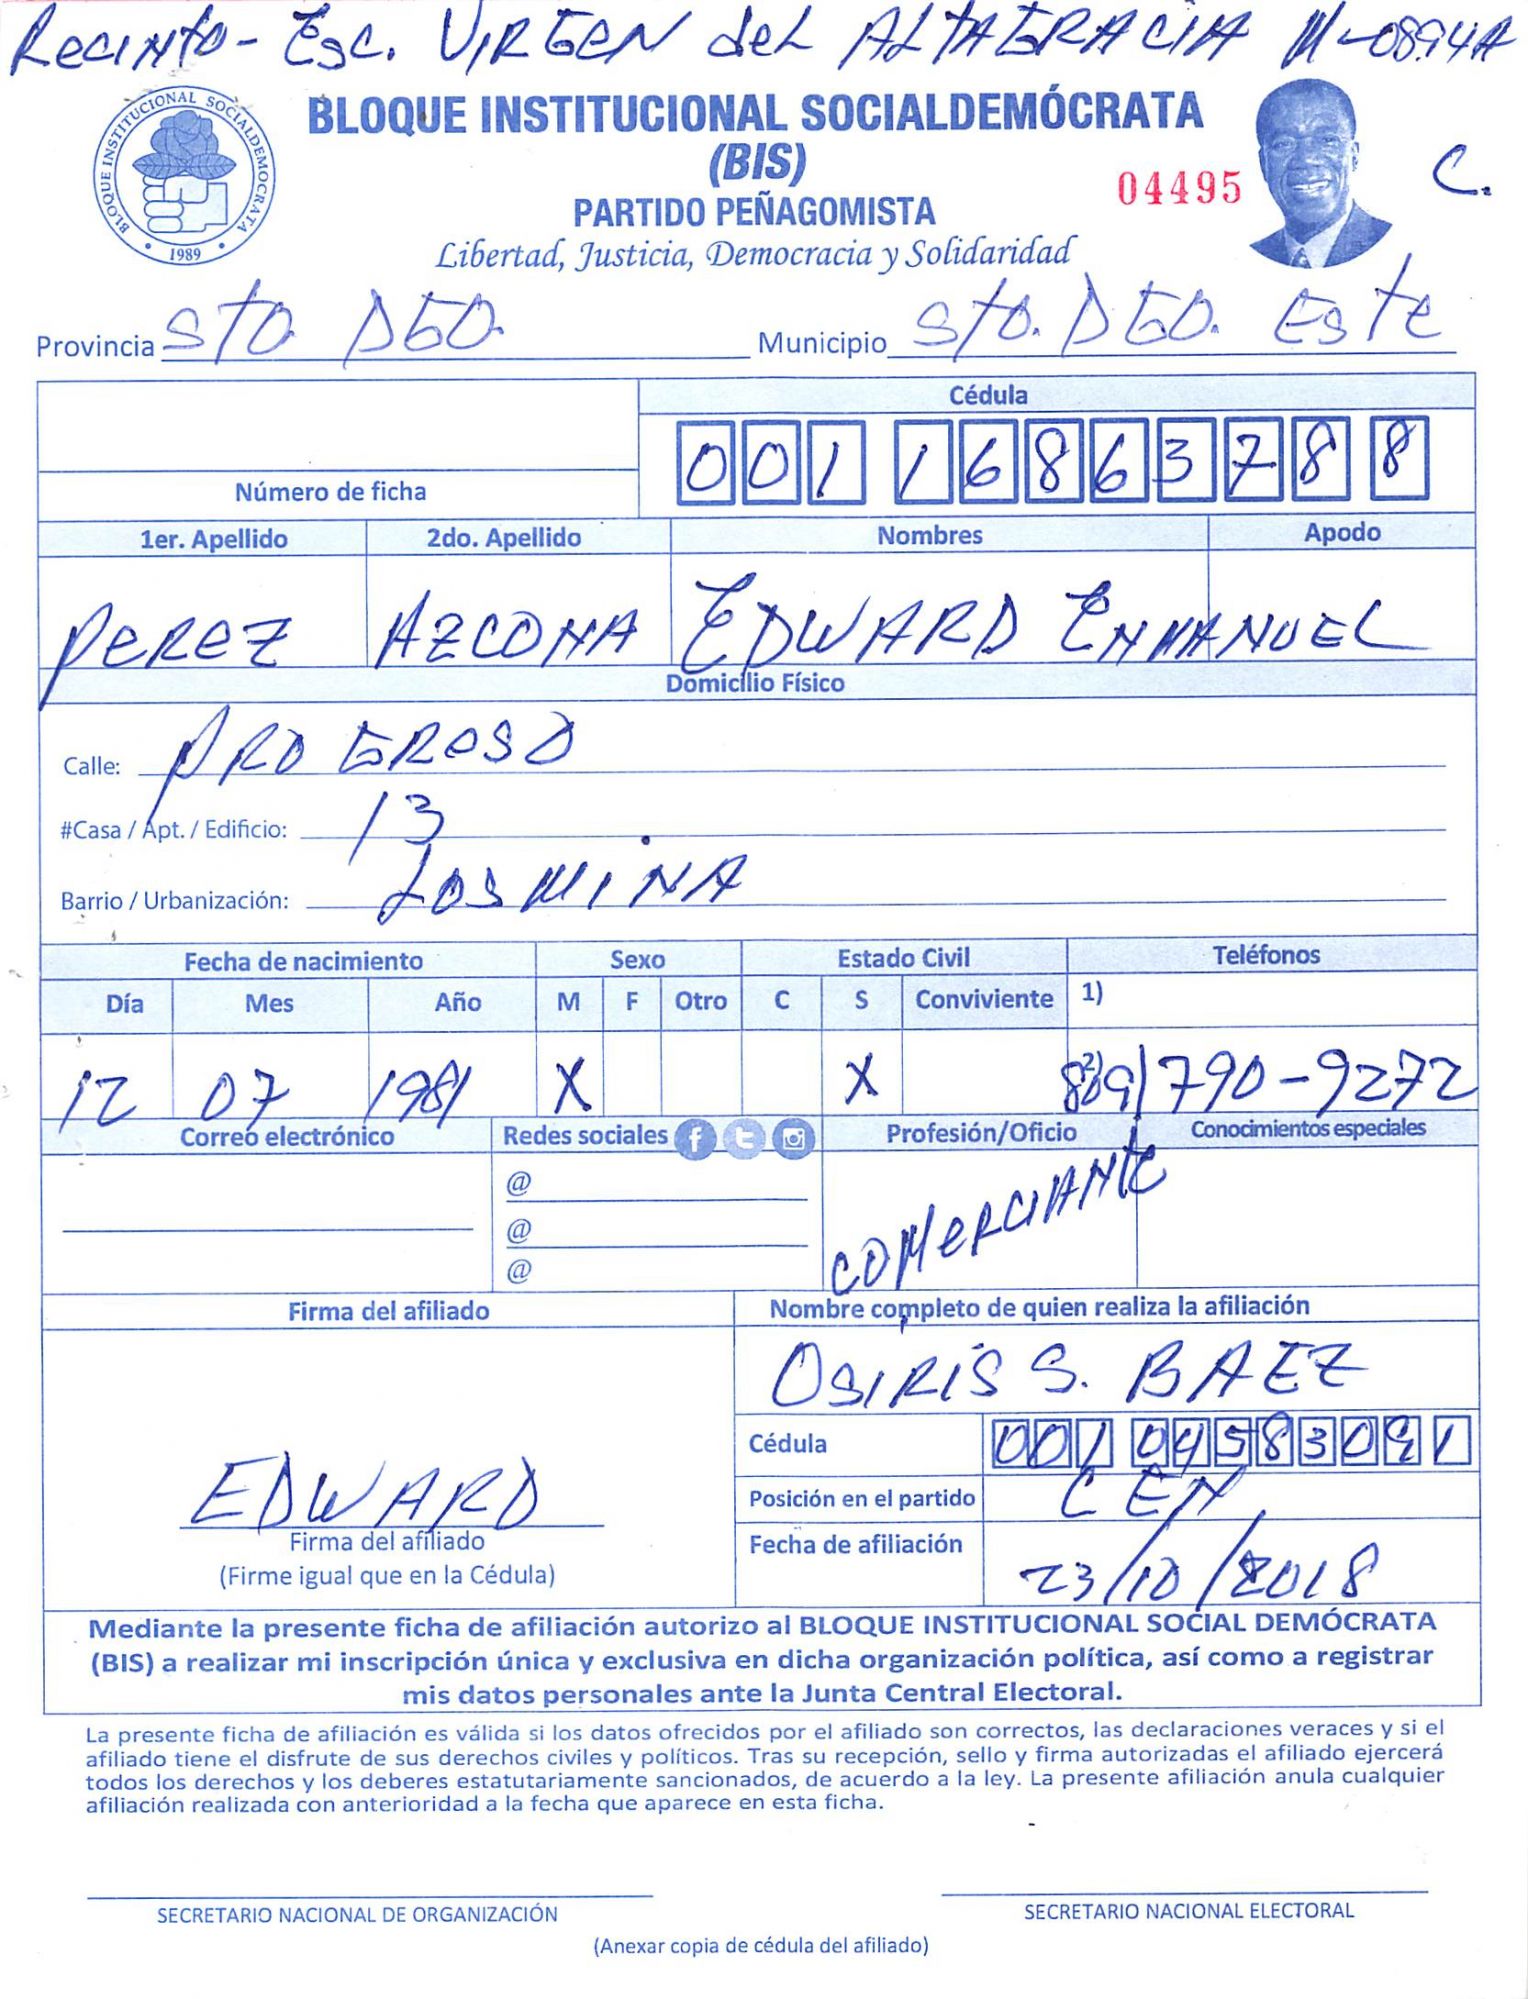 Recinto - Esc. VIRGEN del ALTAGRACIA M-0894A
BLOQUE INSTITUCIONAL SOCIALDEMÓCRATA
(BIS)
PARTIDO PEÑAGOMISTA
Libertad, Justicia, Democracia y Solidaridad
04495
C.
BLOQUE INSTITUCIONAL SOCIALDEMOCRATA
1989
Provincia Sto. DGO. Municipio Sto. DGO. Este
Cédula
001 1686378 8
Número de ficha
1er. Apellido 2do. Apellido Nombres Apodo
PEREZ AZCONA EDWARD EMMANUEL
Domicilio Físico
Calle: PROGRESO
#Casa / Apt. / Edificio: 13
Barrio / Urbanización: LOS MINA
Fecha de nacimiento Sexo Estado Civil Teléfonos
Día Mes Año M F Otro C S Conviviente 1)
12 07 1981 X X 2) 809/790-9272
Correo electrónico Redes sociales Profesión/Oficio Conocimientos especiales
@
@
@
COMERCIANTE
Firma del afiliado Nombre completo de quien realiza la afiliación
OSIRIS S. BAEZ
Cédula 001 0458309 1
Posición en el partido CEN
Fecha de afiliación 23/10/2018
EDWARD
Firma del afiliado
(Firme igual que en la Cédula)
Mediante la presente ficha de afiliación autorizo al BLOQUE INSTITUCIONAL SOCIAL DEMÓCRATA
(BIS) a realizar mi inscripción única y exclusiva en dicha organización política, así como a registrar
mis datos personales ante la Junta Central Electoral.
La presente ficha de afiliación es válida si los datos ofrecidos por el afiliado son correctos, las declaraciones veraces y si el
afiliado tiene el disfrute de sus derechos civiles y políticos. Tras su recepción, sello y firma autorizadas el afiliado ejercerá
todos los derechos y los deberes estatutariamente sancionados, de acuerdo a la ley. La presente afiliación anula cualquier
afiliación realizada con anterioridad a la fecha que aparece en esta ficha.
SECRETARIO NACIONAL DE ORGANIZACIÓN SECRETARIO NACIONAL ELECTORAL
(Anexar copia de cédula del afiliado)